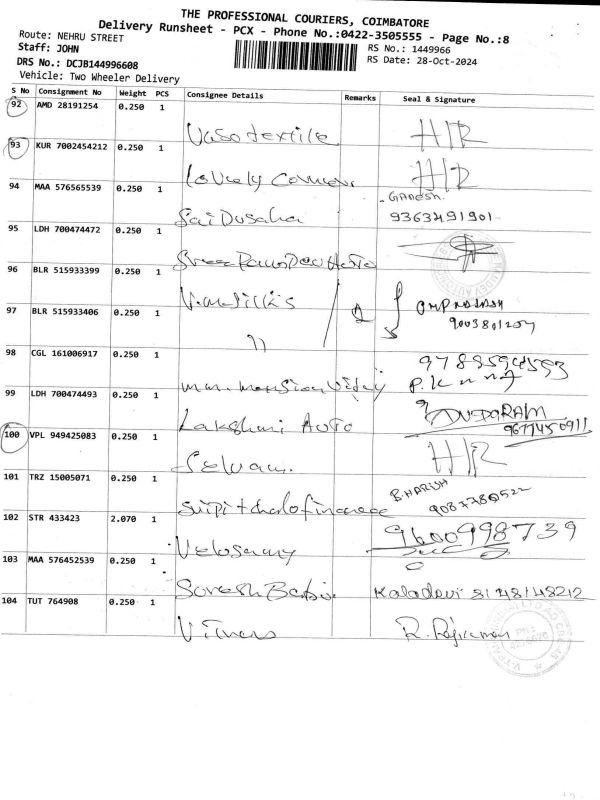 THE PROFESSIONAL COURIERS, COIMBATORE
Delivery Runsheet - PCX - Phone No.:0422-3505555 - Page No.:8
Route: NEHRU STREET
Staff: JOHN
DRS No.: DCJB144996608
Vehicle: Two Wheeler Delivery
RS No.: 1449966
RS Date: 28-Oct-2024
S No Consignment No Weight PCS Consignee Details Remarks Seal & Signature
92 AMD 28191254 0.250 1
Vaso textile H/R
93 KUR 7002454212 0.250 1
Lovely H/R
94 MAA 576565539 0.250 1
Ganesh.
Sai 9363491901
95 LDH 700474472 0.250 1
Sree
96 BLR 515933399 0.250 1
2
97 BLR 515933406 0.250 1
OMPRAKASH
11
98 CGL 161006917 0.250 1
99 LDH 700474493 0.250 1
Lakshmi Auto
9677450911
100 VPL 949425083 0.250 1
Selvam. H/R
101 TRZ 15005071 0.250 1
B.HARISH
102 STR 433423 2.070 1
9600998739
Velosamy
103 MAA 576452539 0.250 1
Suresh Babu. Kaladevi 8148148212
104 TUT 764908 0.250 1
R. Rajkumar